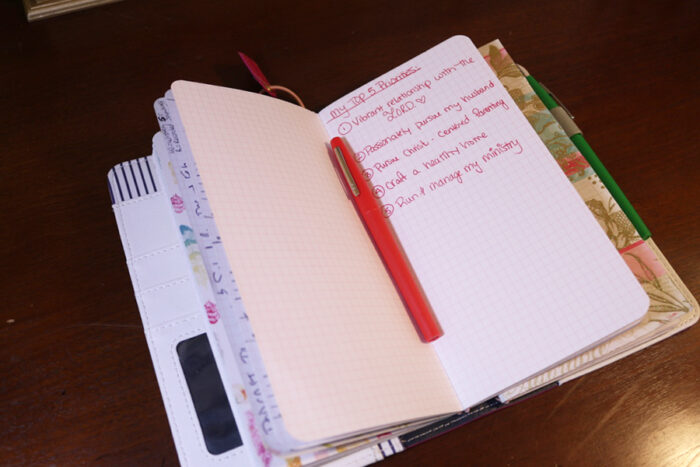 My Top 5 Priorities:
① Vibrant relationship with the
LORD ♡
② Passionately Pursue my husband
③ Pursue Christ-centered Parenting
④ Craft a healthy home
⑤ Run & manage my ministry